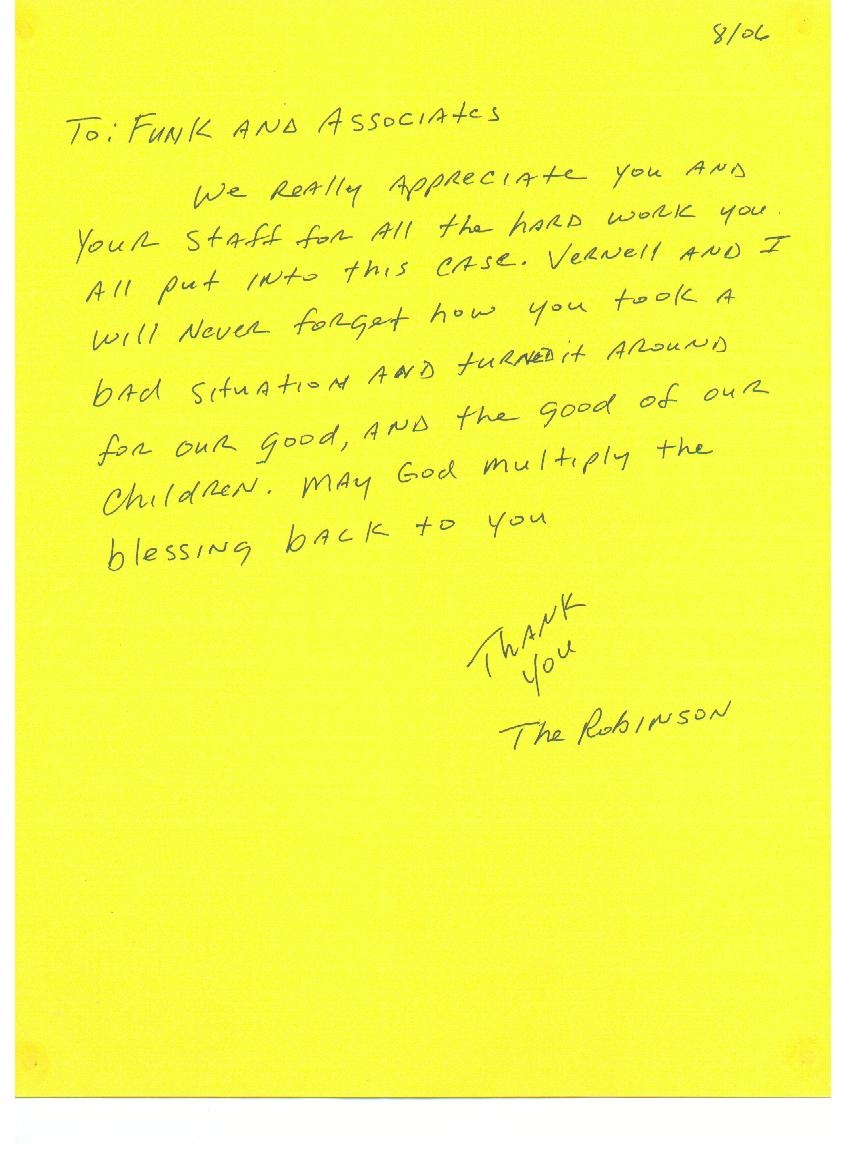 8/06
To: Funk and Associates
We really appreciate you and
your staff for all the hard work you
all put into this case. Vernell and I
will never forget how you took a
bad situation and turned it around
for our good, and the good of our
children. May God multiply the
blessing back to you
Thank
you
The Robinson